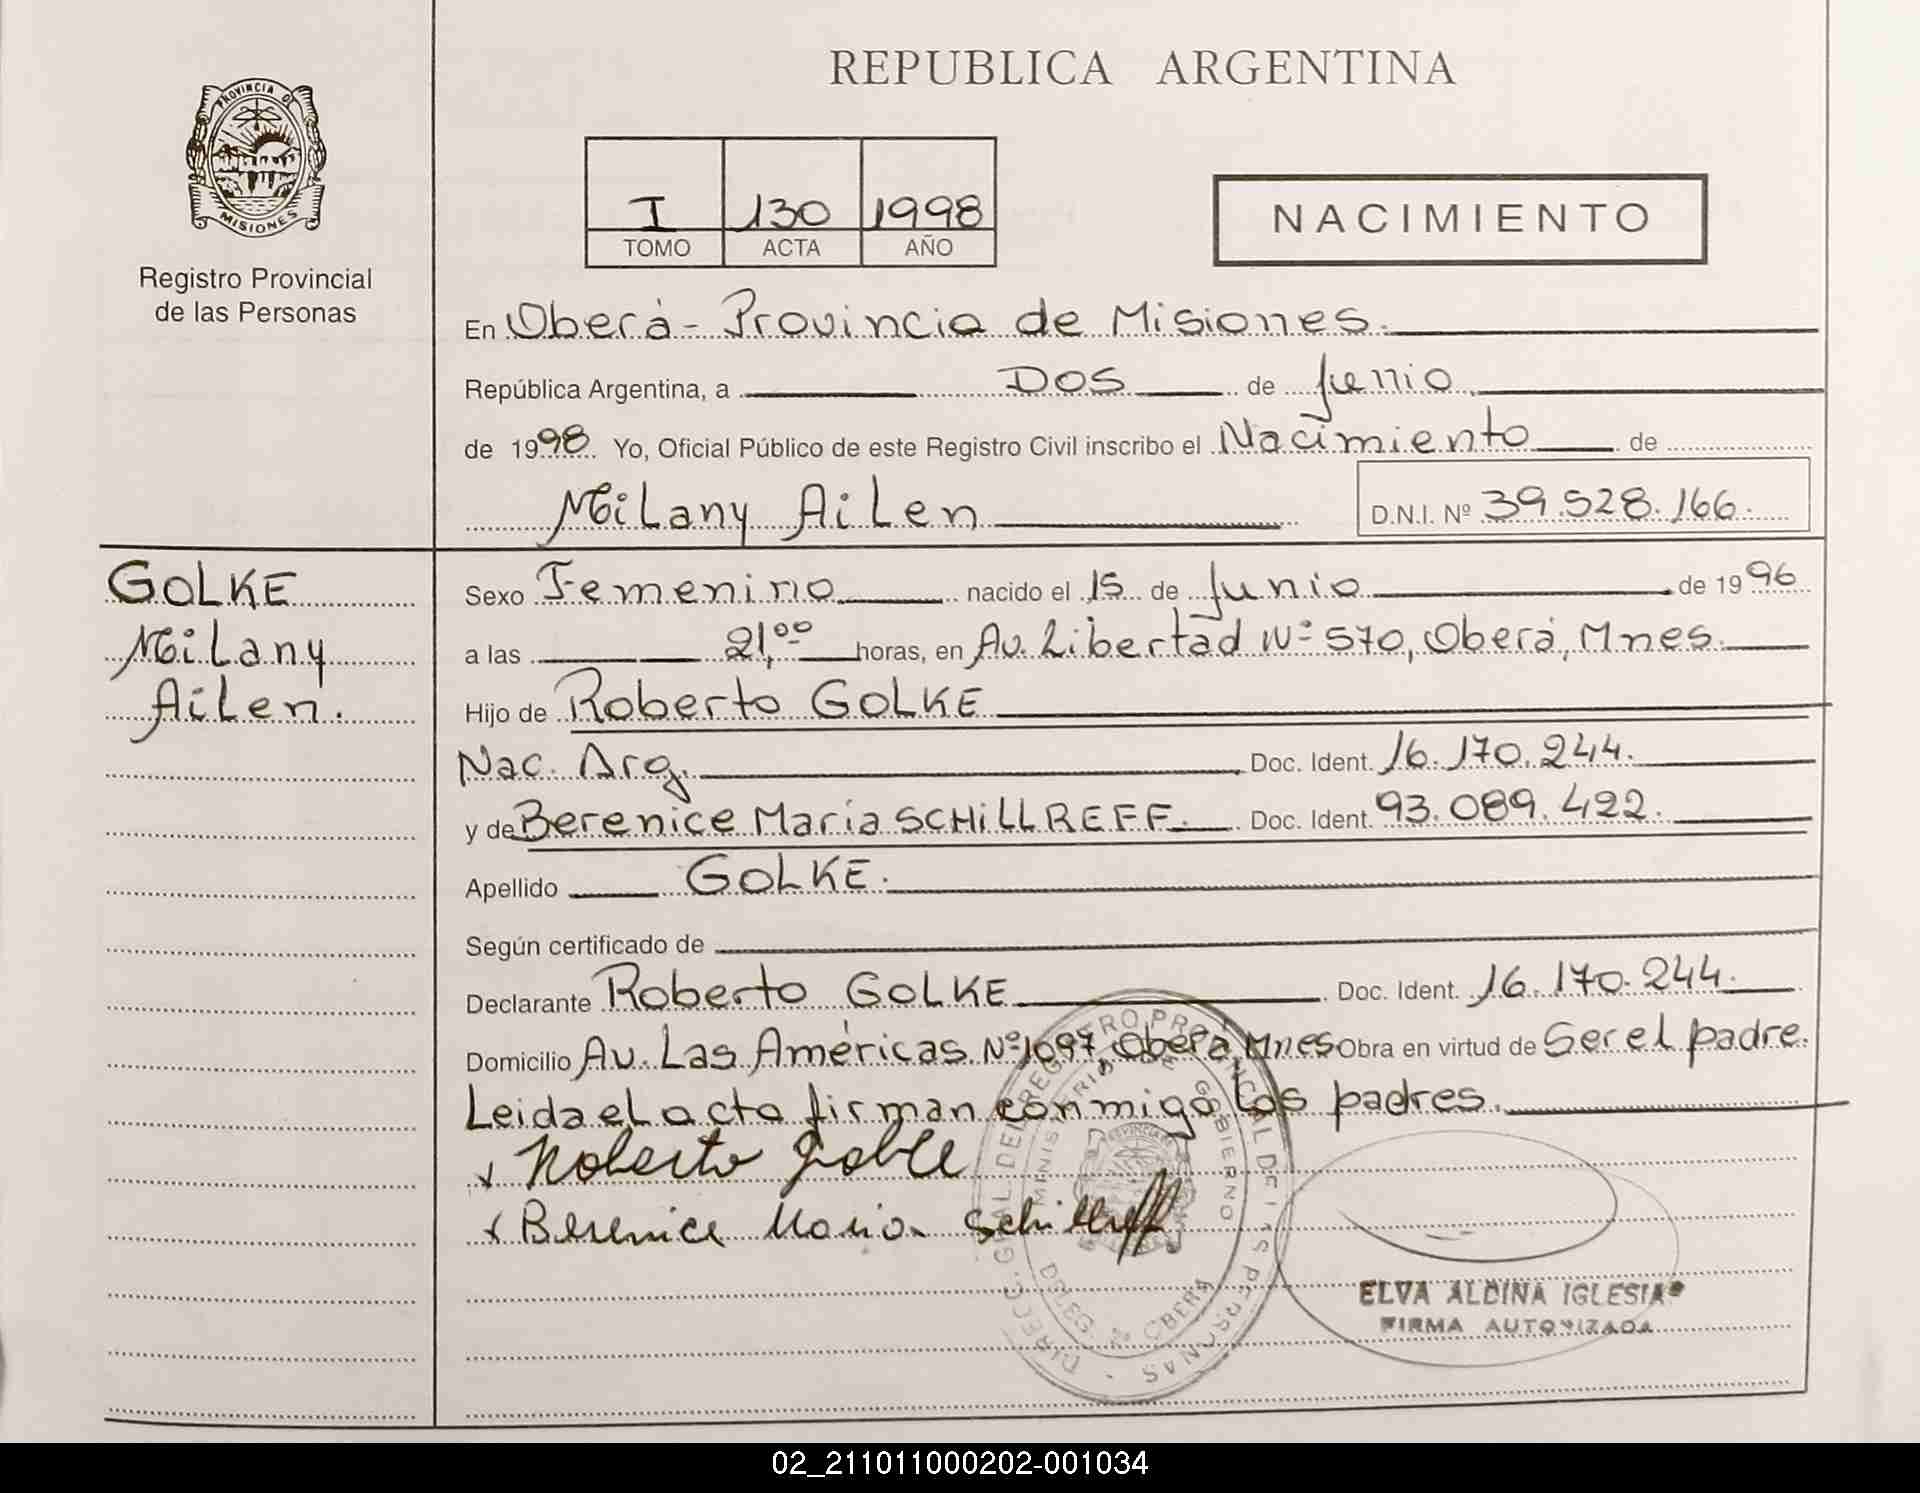 PROVINCIA DE
MISIONES
Registro Provincial
de las Personas
REPUBLICA ARGENTINA
I 130 1998
TOMO ACTA AÑO
NACIMIENTO
En Oberá - Provincia de Misiones.
República Argentina, a DOS de Junio
de 1998. Yo, Oficial Público de este Registro Civil inscribo el Nacimiento de
Milany Ailen D.N.I. Nº 39.528.166.
GOLKE
Milany
Ailen.
Sexo Femenino nacido el 15 de Junio de 1996
a las 21,00 horas, en Av. Libertad Nº 570, Oberá, Mnes.
Hijo de Roberto GOLKE
Nac. Arg. Doc. Ident. 16.170.244.
y de Berenice María SCHILLREFF. Doc. Ident. 93.089.422.
Apellido GOLKE.
Según certificado de
Declarante Roberto GOLKE Doc. Ident. 16.170.244.
Domicilio Av. Las Américas Nº 1097, Oberá, Mnes Obra en virtud de Ser el padre.
Leida el acta firman conmigo los padres.
Roberto Golke
Berenice Maria Schillreff
DIRECC. GRAL DEL REGISTRO PROVINCIAL DE LAS PERSONAS
MINISTERIO DE GOBIERNO
DELEG. OBERA
ELVA ALDINA IGLESIAS
FIRMA AUTORIZADA
02_211011000202-001034